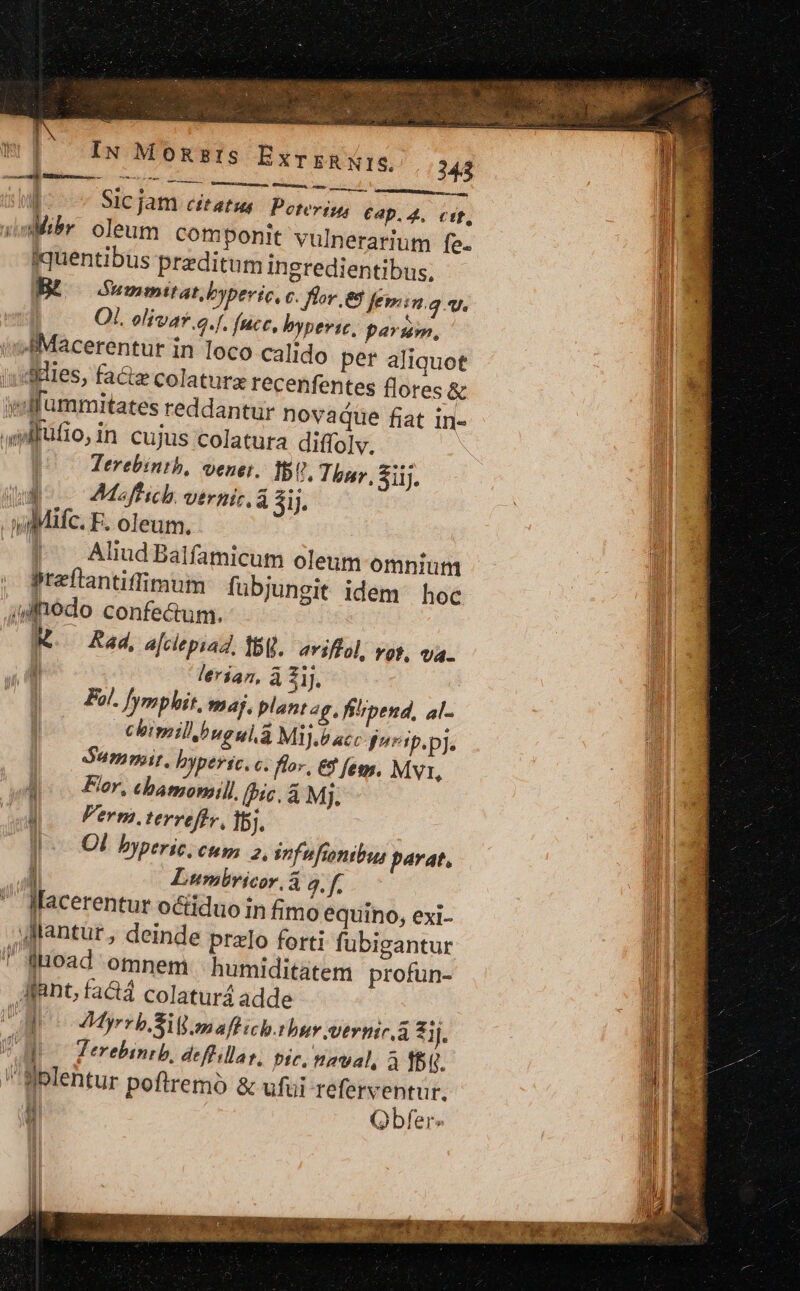 IN MORBIS EXTERNIS. 343
Sic jam citatus Poterius cap. 4. cit.
libr oleum componit vulnerarium ſe-
quentibus præditum ingredientibus.
℞ Summitat. hyperic. c. flor. & ſemin. q. v.
Ol. olivar. q. ſ. ſucc. hyperic. parùm.
Macerentur in loco calido per aliquot
dies, factæ colaturæ recenſentes flores &
ſummitates reddantur novaque fiat in-
fuſio, in cujus colatura diſſolv.
Terebinth. venet. ℔ß. Thur. ℥iij.
Maſtich. vernic. ā ℥ij.
Miſc. F. oleum.
Aliud Balſamicum oleum omnium
præſtantiſſimum ſubjungit idem hoc
modo confectum.
℞. Rad. aſclepiad. ℔ß. ariſtol. rot. va-
lerian. ā ℥ij.
Fol. ſymphit. maj. plantag. filipend. al-
chimill. bugul. ā Mij. bacc junip. pj.
Summit. hyperic. c. flor. & ſem. Mvi.
Flor. chamomill. ſpic. ā Mj.
Verm. terreſtr. ℔j.
Ol hyperic. cum 2. infuſionibus parat.
Lumbricor. ā q. ſ.
Macerentur octiduo in fimo equino, exi-
mantur, deinde prælo forti ſubigantur
quoad omnem humiditatem profun-
dant, factâ colaturâ adde
Myrrh. ℥iß. maſtich. thur. vernic. ā ℥ij.
Terebinth. deſtillat. pic. naval. ā ℔ß.
Colentur poſtremò & uſui reſerventur.
Obſer-